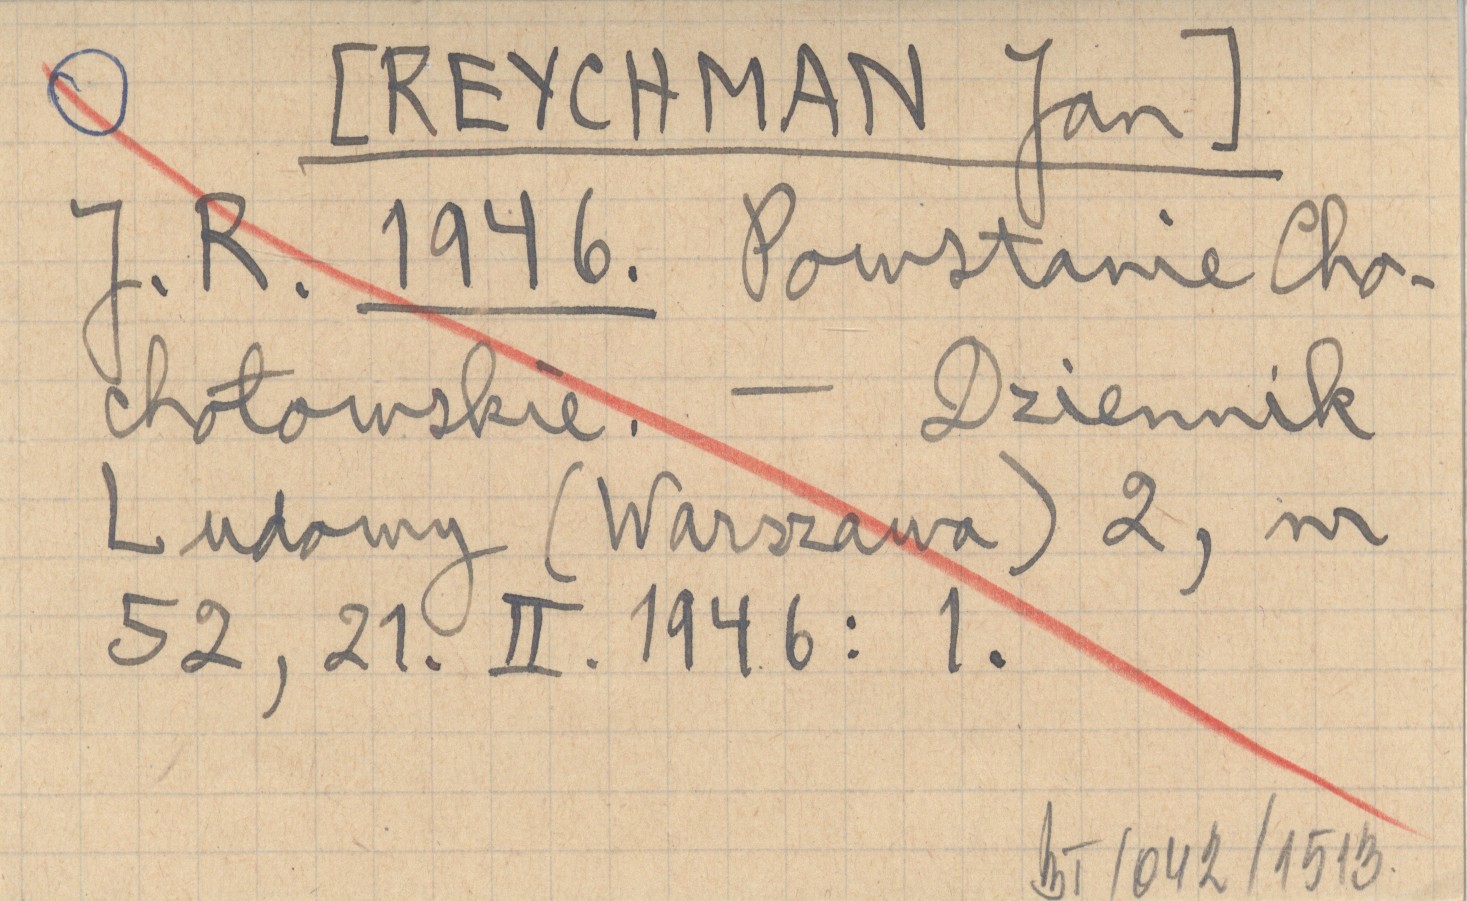 [REYCHMAN Jan]
J. R. 1946. Powstanie Cho-
chołowskie. — Dziennik
Ludowy (Warszawa) 2, nr
52, 21. II. 1946: 1.
/042/1513